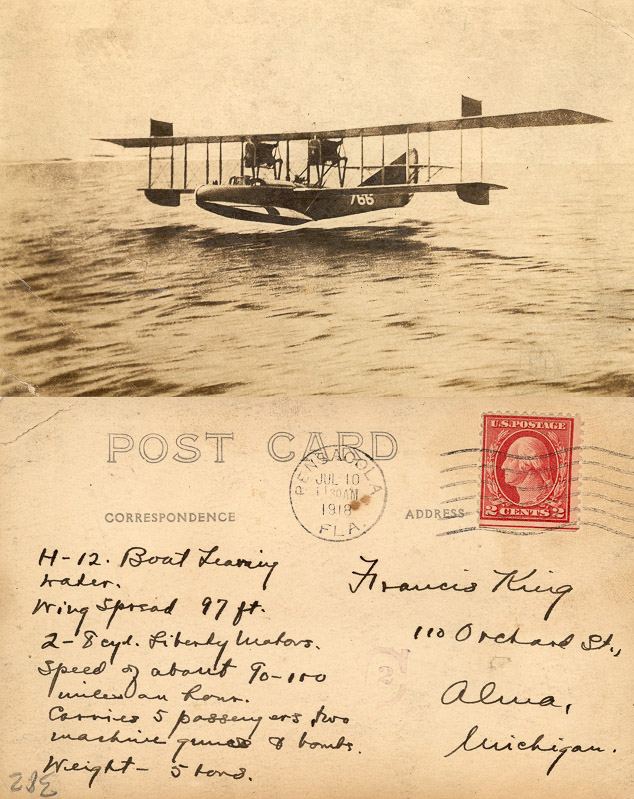 766
POST CARD
U.S. POSTAGE
2 CENTS 2
PENSACOLA
JUL 10
11 30AM
1918
FLA.
CORRESPONDENCE
ADDRESS
H-12. Boat Leaving
water.
Wing Spread 97 ft.
2-8 cyd. Liberty Motors.
Speed of about 90-100
miles an hour.
Carries 5 passengers, two
machine guns & bombs.
Weight - 5 tons.
Francis King
110 Orchard St.,
Alma,
Michigan.